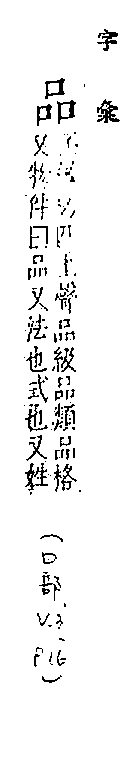 字彙
品
上聲品級品類品格
又物件曰品又法也式也又姓
(口部,V.3, P16)